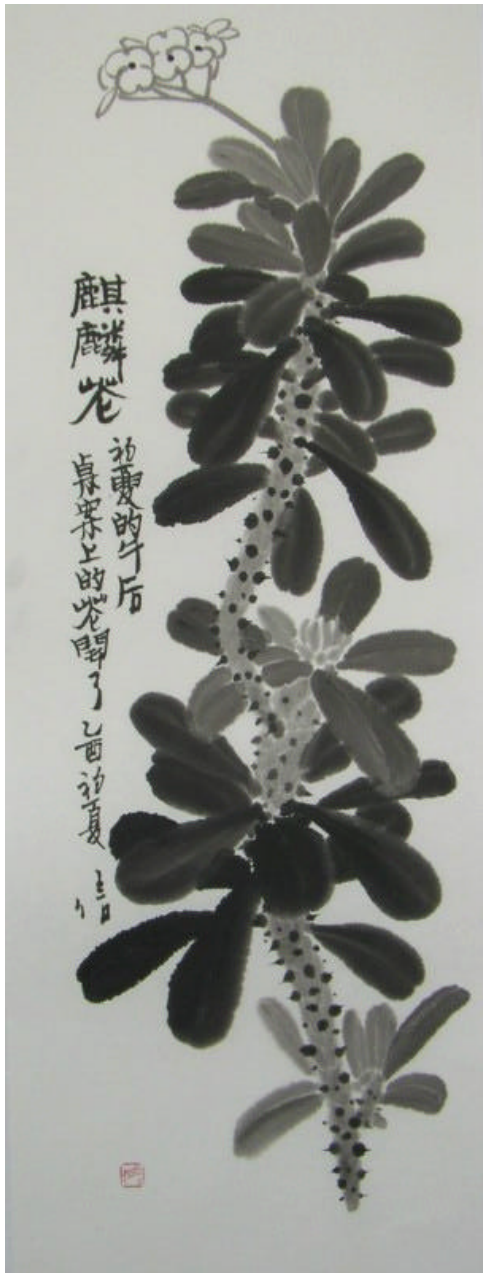 麒麟花
初夏的午后
桌案上的花開了乙酉初夏 信